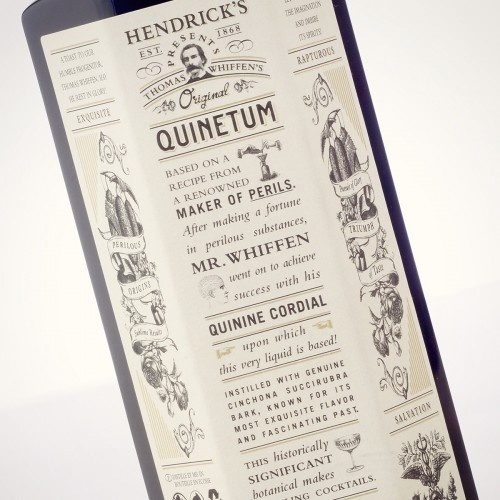 HENDRICK'S
EST. PRESENTS 1868
THOMAS WHIFFEN'S
Original
QUINETUM
BASED ON A
RECIPE FROM
A RENOWNED
MAKER OF PERILS.
After making a fortune
in perilous substances,
MR. WHIFFEN
went on to achieve
success with his
QUININE CORDIAL
upon which
this very liquid is based!
INSTILLED WITH GENUINE
CINCHONA SUCCIRUBRA
BARK, KNOWN FOR ITS
MOST EXQUISITE FLAVOR
AND FASCINATING PAST.
This historically
SIGNIFICANT
botanical makes
COCKTAILS.
A TOAST TO OUR
HUMBLE PROGENITOR,
THOMAS WHIFFEN. MAY
HE REST IN GLORY
EXQUISITE
PERILOUS
ORIGINS
THE IMAGINATION
AND IMBIBE
ITS SPIRITS
RAPTUROUS
TRIUMPH
of Taste
SALVATION